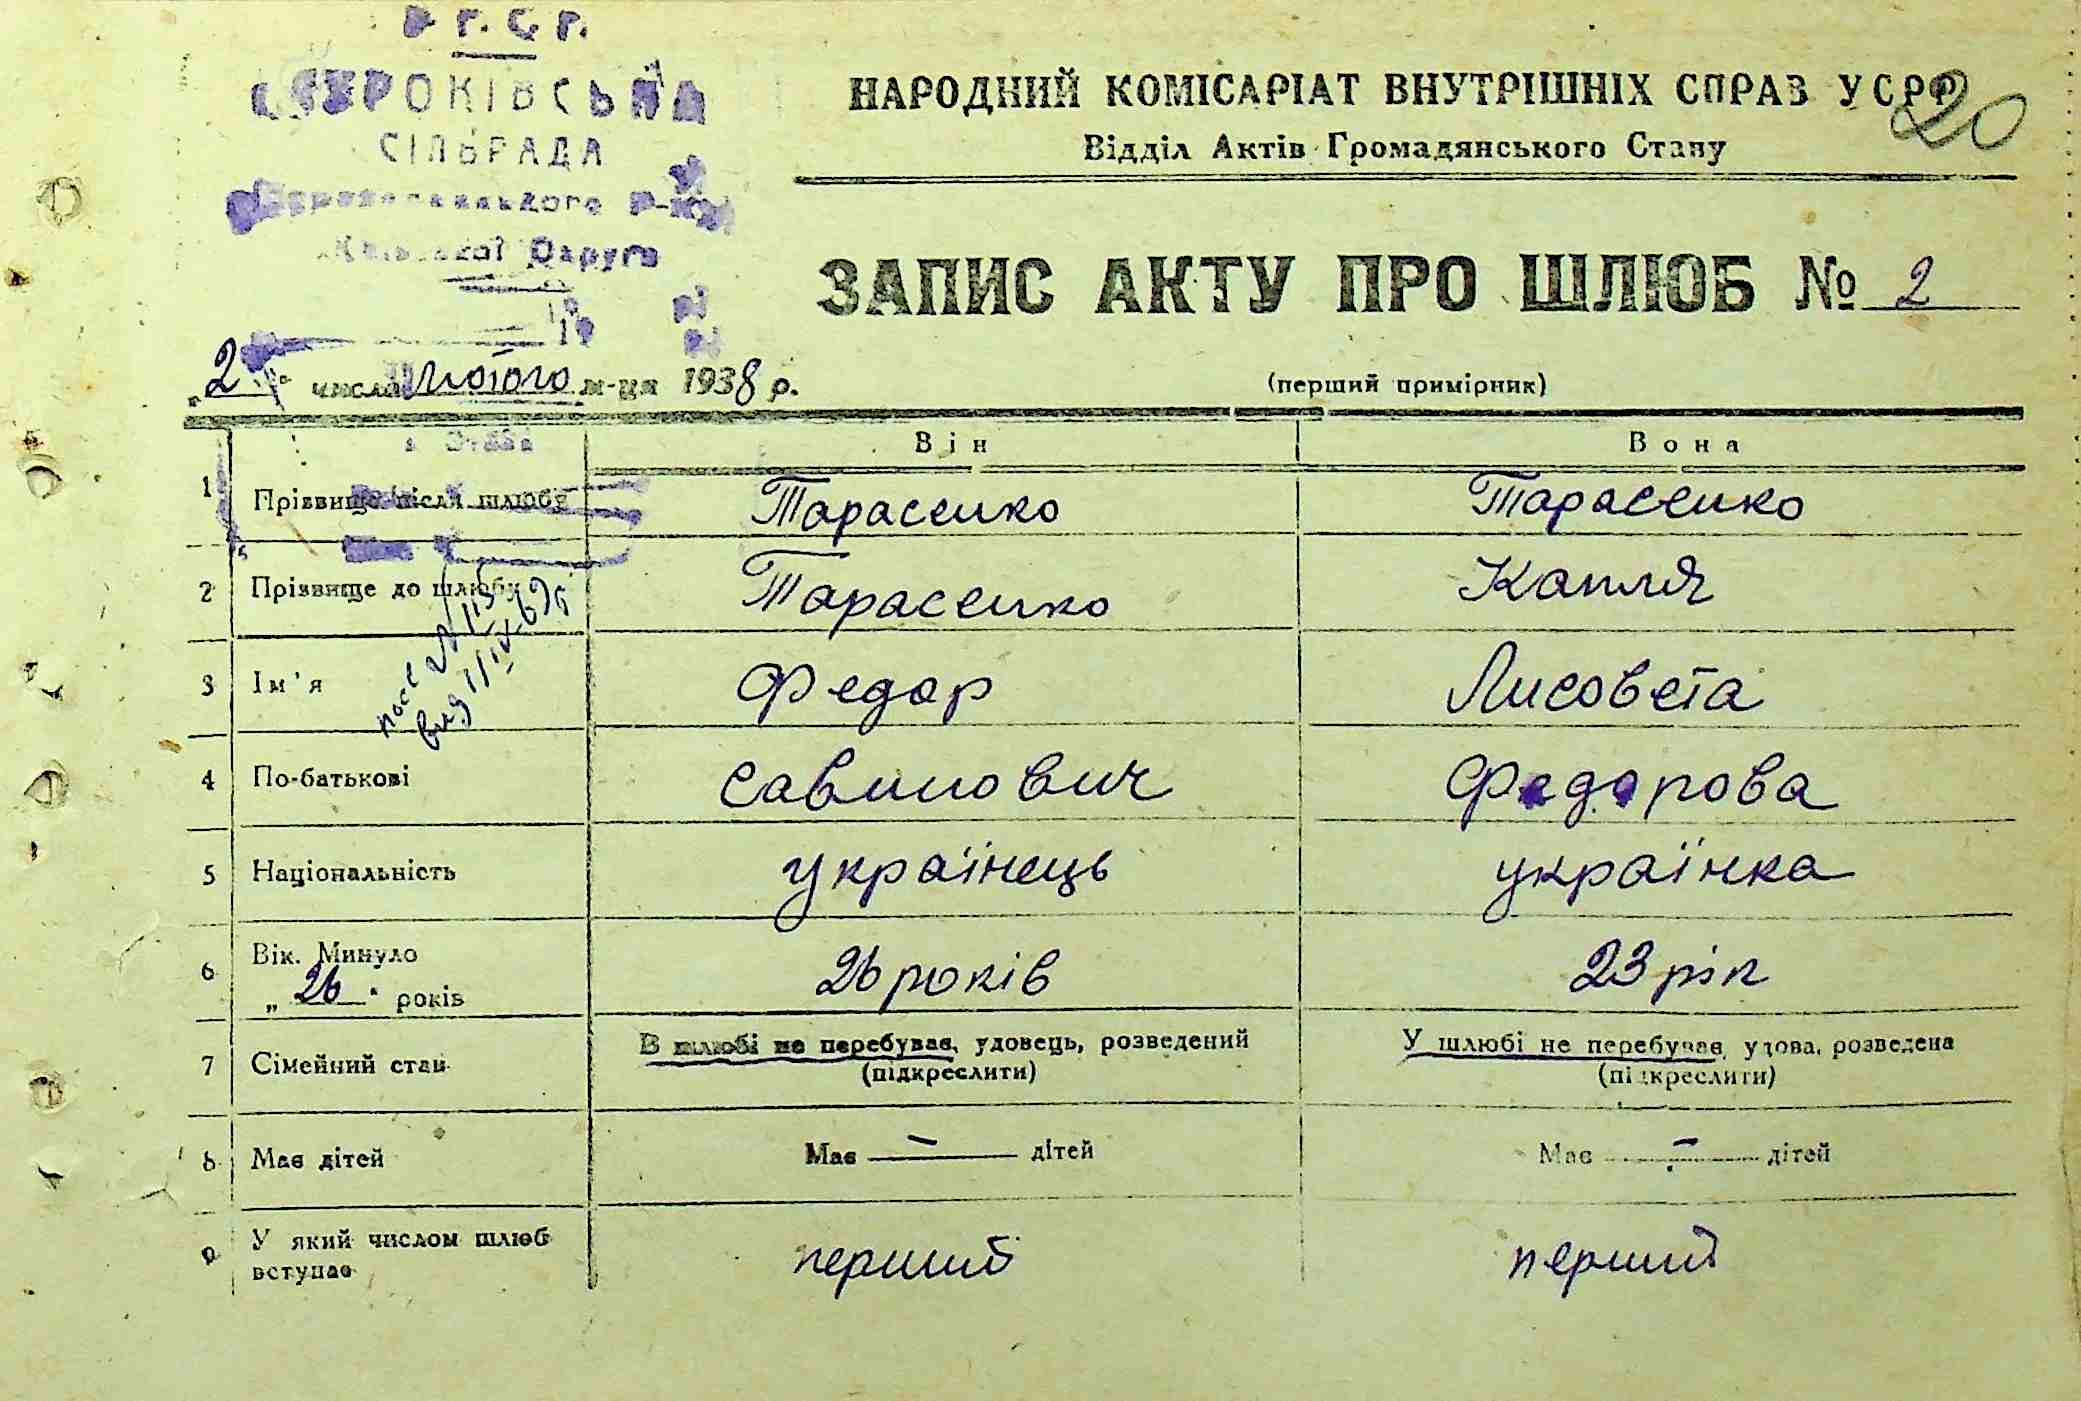 У.С.Р.Р.
РОКІВСЬКА
СІЛЬРАДА
Округа
НАРОДНИЙ КОМІСАРІАТ ВНУТРІШНІХ СПРАВ УСРР
20
Відділ Актів Громадянського Стану
ЗАПИС АКТУ ПРО ШЛЮБ № 2
(перший примірник)
„2" числа Лютого м-ця 1938 р.
Він Вона
1 Прізвище після шлюбу Тарасенко Тарасенко
2 Прізвище до шлюбу Тарасенко Капля
3 Ім'я Федор Лисовета
4 По-батькові Савинович Федорова
5 Національність українець українка
6 Вік. Минуло
„26" років 26 років 23 рік
7 Сімейний стан В шлюбі не перебував, удовець, розведений У шлюбі не перебував, удова, розведена
(підкреслити) (підкреслити)
8 Має дітей Має — дітей Має — дітей
9 У який числом шлюб
вступає перший перший